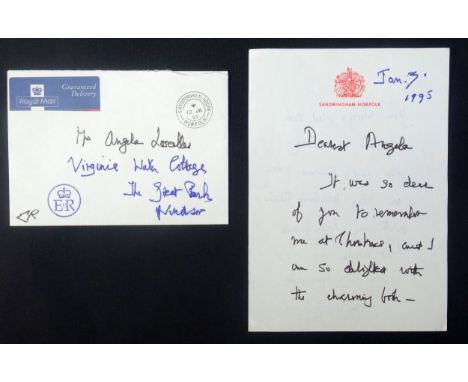 Guaranteed
Delivery
Royal Mail
SANDRINGHAM
NORFOLK
Angela Lascelles
Virginia Water Cottage
The Great Park
Windsor
E R
SANDRINGHAM, NORFOLK
Jan.
1995
Dearest Angela
It was so dear
of you to remember
me at Christmas, and I
am so delighted with
the charming box —